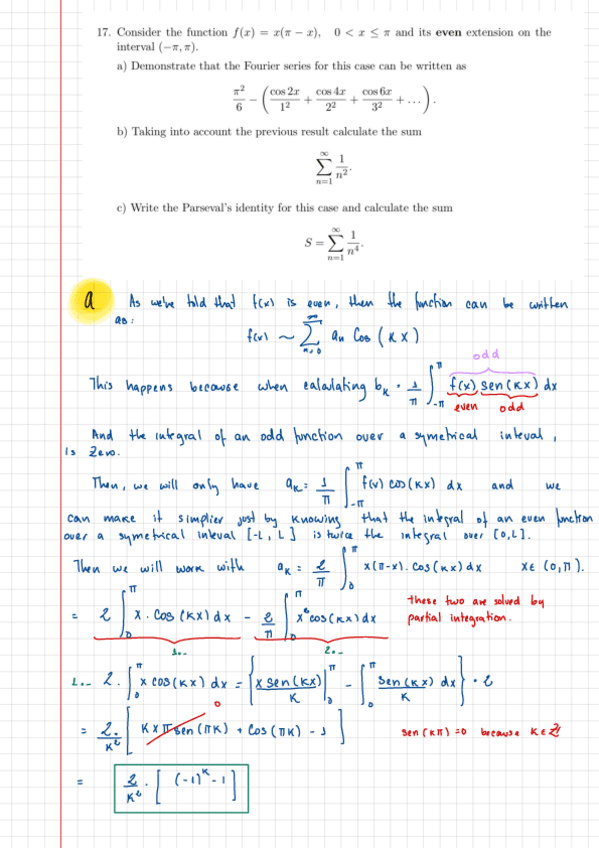 17. Consider the function f(x) = x(π − x), 0 < x ≤ π and its even extension on the
interval (−π, π).
a) Demonstrate that the Fourier series for this case can be written as
π²/6 − (cos 2x/1² + cos 4x/2² + cos 6x/3² + …).
b) Taking into account the previous result calculate the sum
∑_{n=1}^{∞} 1/n².
c) Write the Parseval's identity for this case and calculate the sum
S = ∑_{n=1}^{∞} 1/n⁴.
a As we've told that f(x) is even, then the function can be written
as:
f(x) ~ ∑_{n=0}^{∞} an Cos (kx)
odd
This happens because when calculating b_k = 1/π ∫_{-π}^{π} f(x) sen(kx) dx
even odd
And the integral of an odd function over a symetrical inteval,
is zero.
Then, we will only have a_k = 1/π ∫_{-π}^{π} f(x) cos(kx) dx and we
can make it simplier just by knowing that the integral of an even function
over a symetrical inteval [-L, L] is twice the integral over [0, L].
Then we will work with a_k = 2/π ∫_0^π x(π-x). cos(kx) dx x∈ (0,π).
= 2 ∫_0^π x. cos (kx) dx - 2/π ∫_0^π x² cos(kx) dx these two are solved by
partial integration.
1.- 2.-
1.- 2. ∫_0^π x cos(kx) dx = { x sen(kx)/k |_0^π - ∫_0^π sen(kx)/k dx } · 2
0
= 2/k² . [ k x π sen (πk) + cos (πk) - 1 ] sen (kπ) = 0 because k∈ℤ
= 2/k² . [ (-1)^k - 1 ]